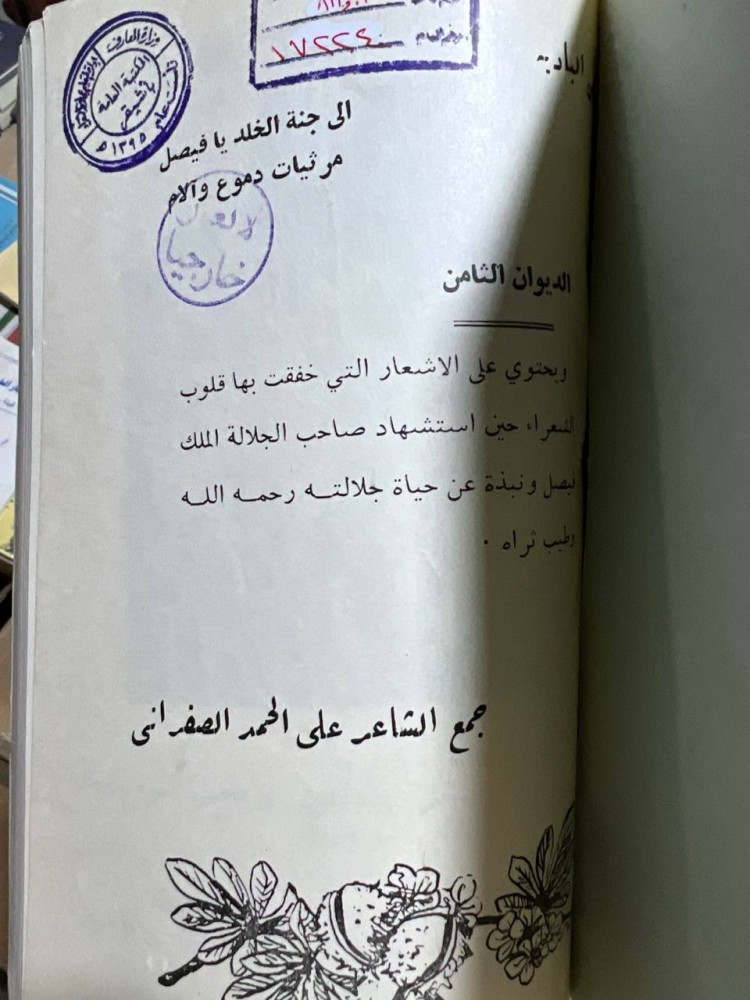 ١٧٢٢٤
وزارة المعارف
المكتبة العامة
١٣٩٥ هـ
الى جنة الخلد يا فيصل
مرثيات دموع وآلام
خارجيا
الديوان الثامن
ويحتوي على الاشعار التي خفقت بها قلوب
الشعراء حين استشهاد صاحب الجلالة الملك
فيصل ونبذة عن حياة جلالتـه رحمـه اللـه
وطيب ثراه ٠
جمع الشاعر على الحمد الصفرانى